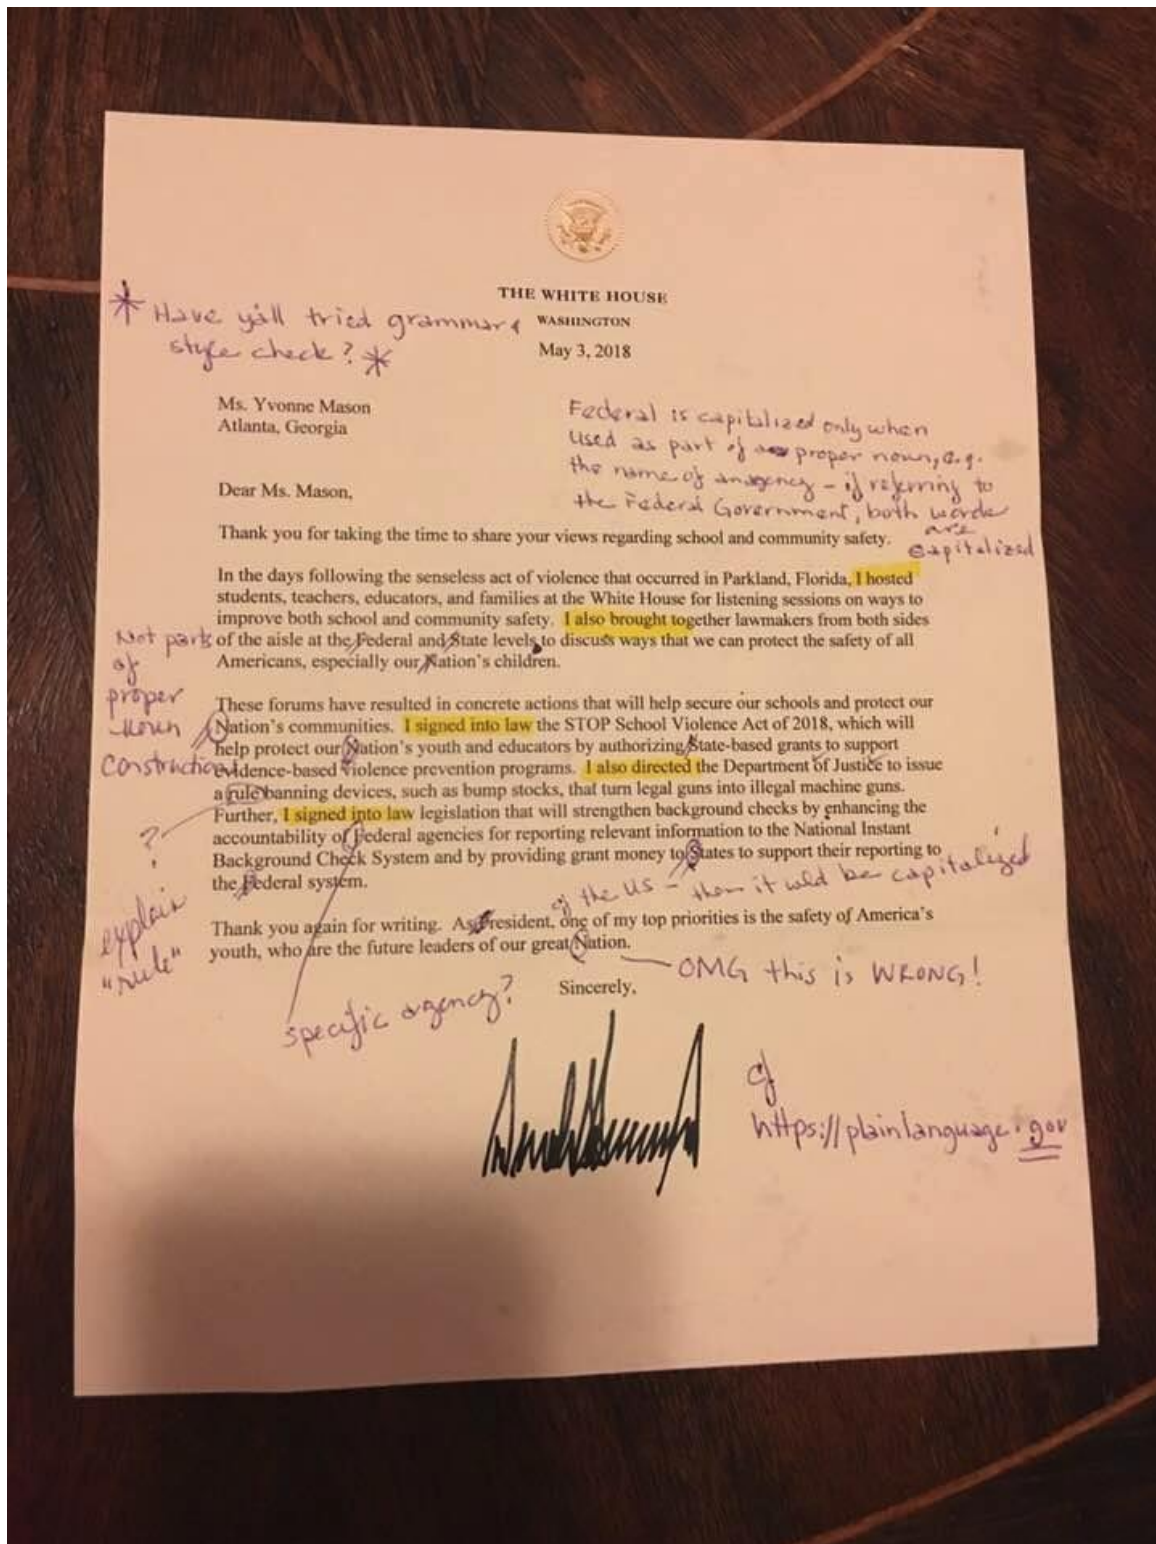 THE WHITE HOUSE
WASHINGTON
May 3, 2018
* Have y'all tried grammar &
style check? *
Ms. Yvonne Mason
Atlanta, Georgia
Federal is capitalized only when
used as part of a proper noun, e.g.
the name of an agency – if referring to
the Federal Government, both words
are
capitalized
Dear Ms. Mason,
Thank you for taking the time to share your views regarding school and community safety.
In the days following the senseless act of violence that occurred in Parkland, Florida, I hosted
students, teachers, educators, and families at the White House for listening sessions on ways to
improve both school and community safety. I also brought together lawmakers from both sides
of the aisle at the Federal and State levels to discuss ways that we can protect the safety of all
Americans, especially our Nation's children.
Not part
of
proper
noun
construction
These forums have resulted in concrete actions that will help secure our schools and protect our
Nation's communities. I signed into law the STOP School Violence Act of 2018, which will
help protect our Nation's youth and educators by authorizing State-based grants to support
evidence-based violence prevention programs. I also directed the Department of Justice to issue
a rule banning devices, such as bump stocks, that turn legal guns into illegal machine guns.
Further, I signed into law legislation that will strengthen background checks by enhancing the
accountability of Federal agencies for reporting relevant information to the National Instant
Background Check System and by providing grant money to States to support their reporting to
the Federal system.
?
explain
"rule"
of the US – then it wld be capitalized
Thank you again for writing. As President, one of my top priorities is the safety of America's
youth, who are the future leaders of our great Nation.
OMG this is WRONG!
specific agency?
Sincerely,
cf
https://plainlanguage.gov